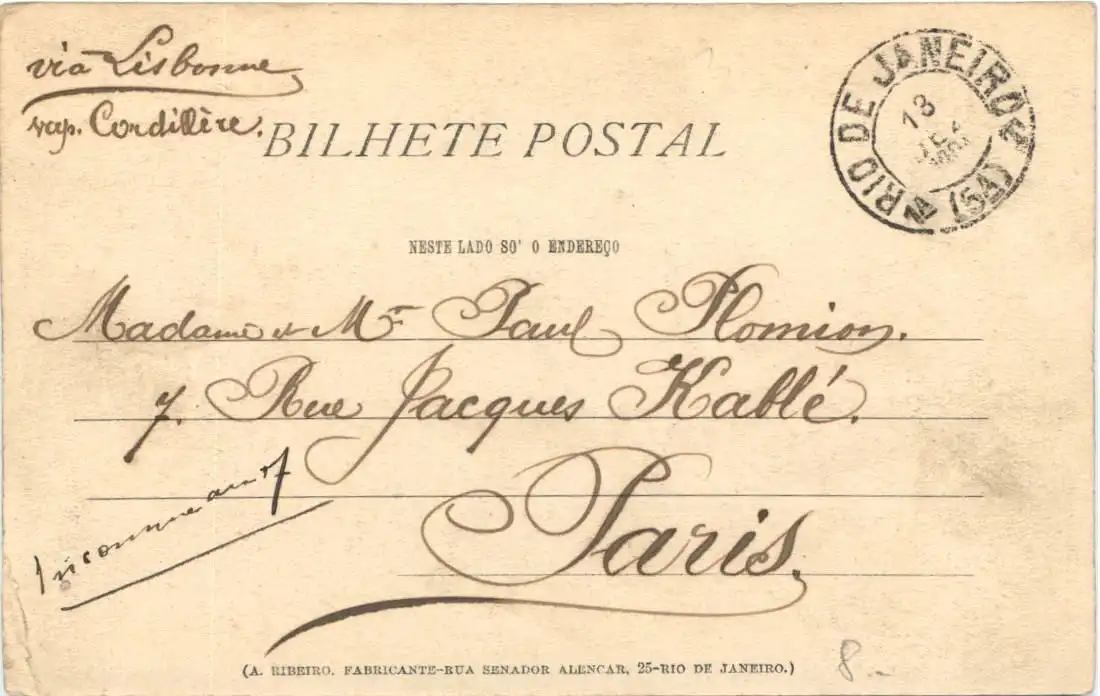 via Lisbonne
vap. Cordillère.
RIO DE JANEIRO
13
1A (5A)
BILHETE POSTAL
NESTE LADO SO' O ENDEREÇO
Madame et Mr Paul Plomion.
7. Rue Jacques Kablé.
Paris.
Inconnue au 7
(A. RIBEIRO. FABRICANTE-RUA SENADOR ALENCAR, 25-RIO DE JANEIRO.)
8.-